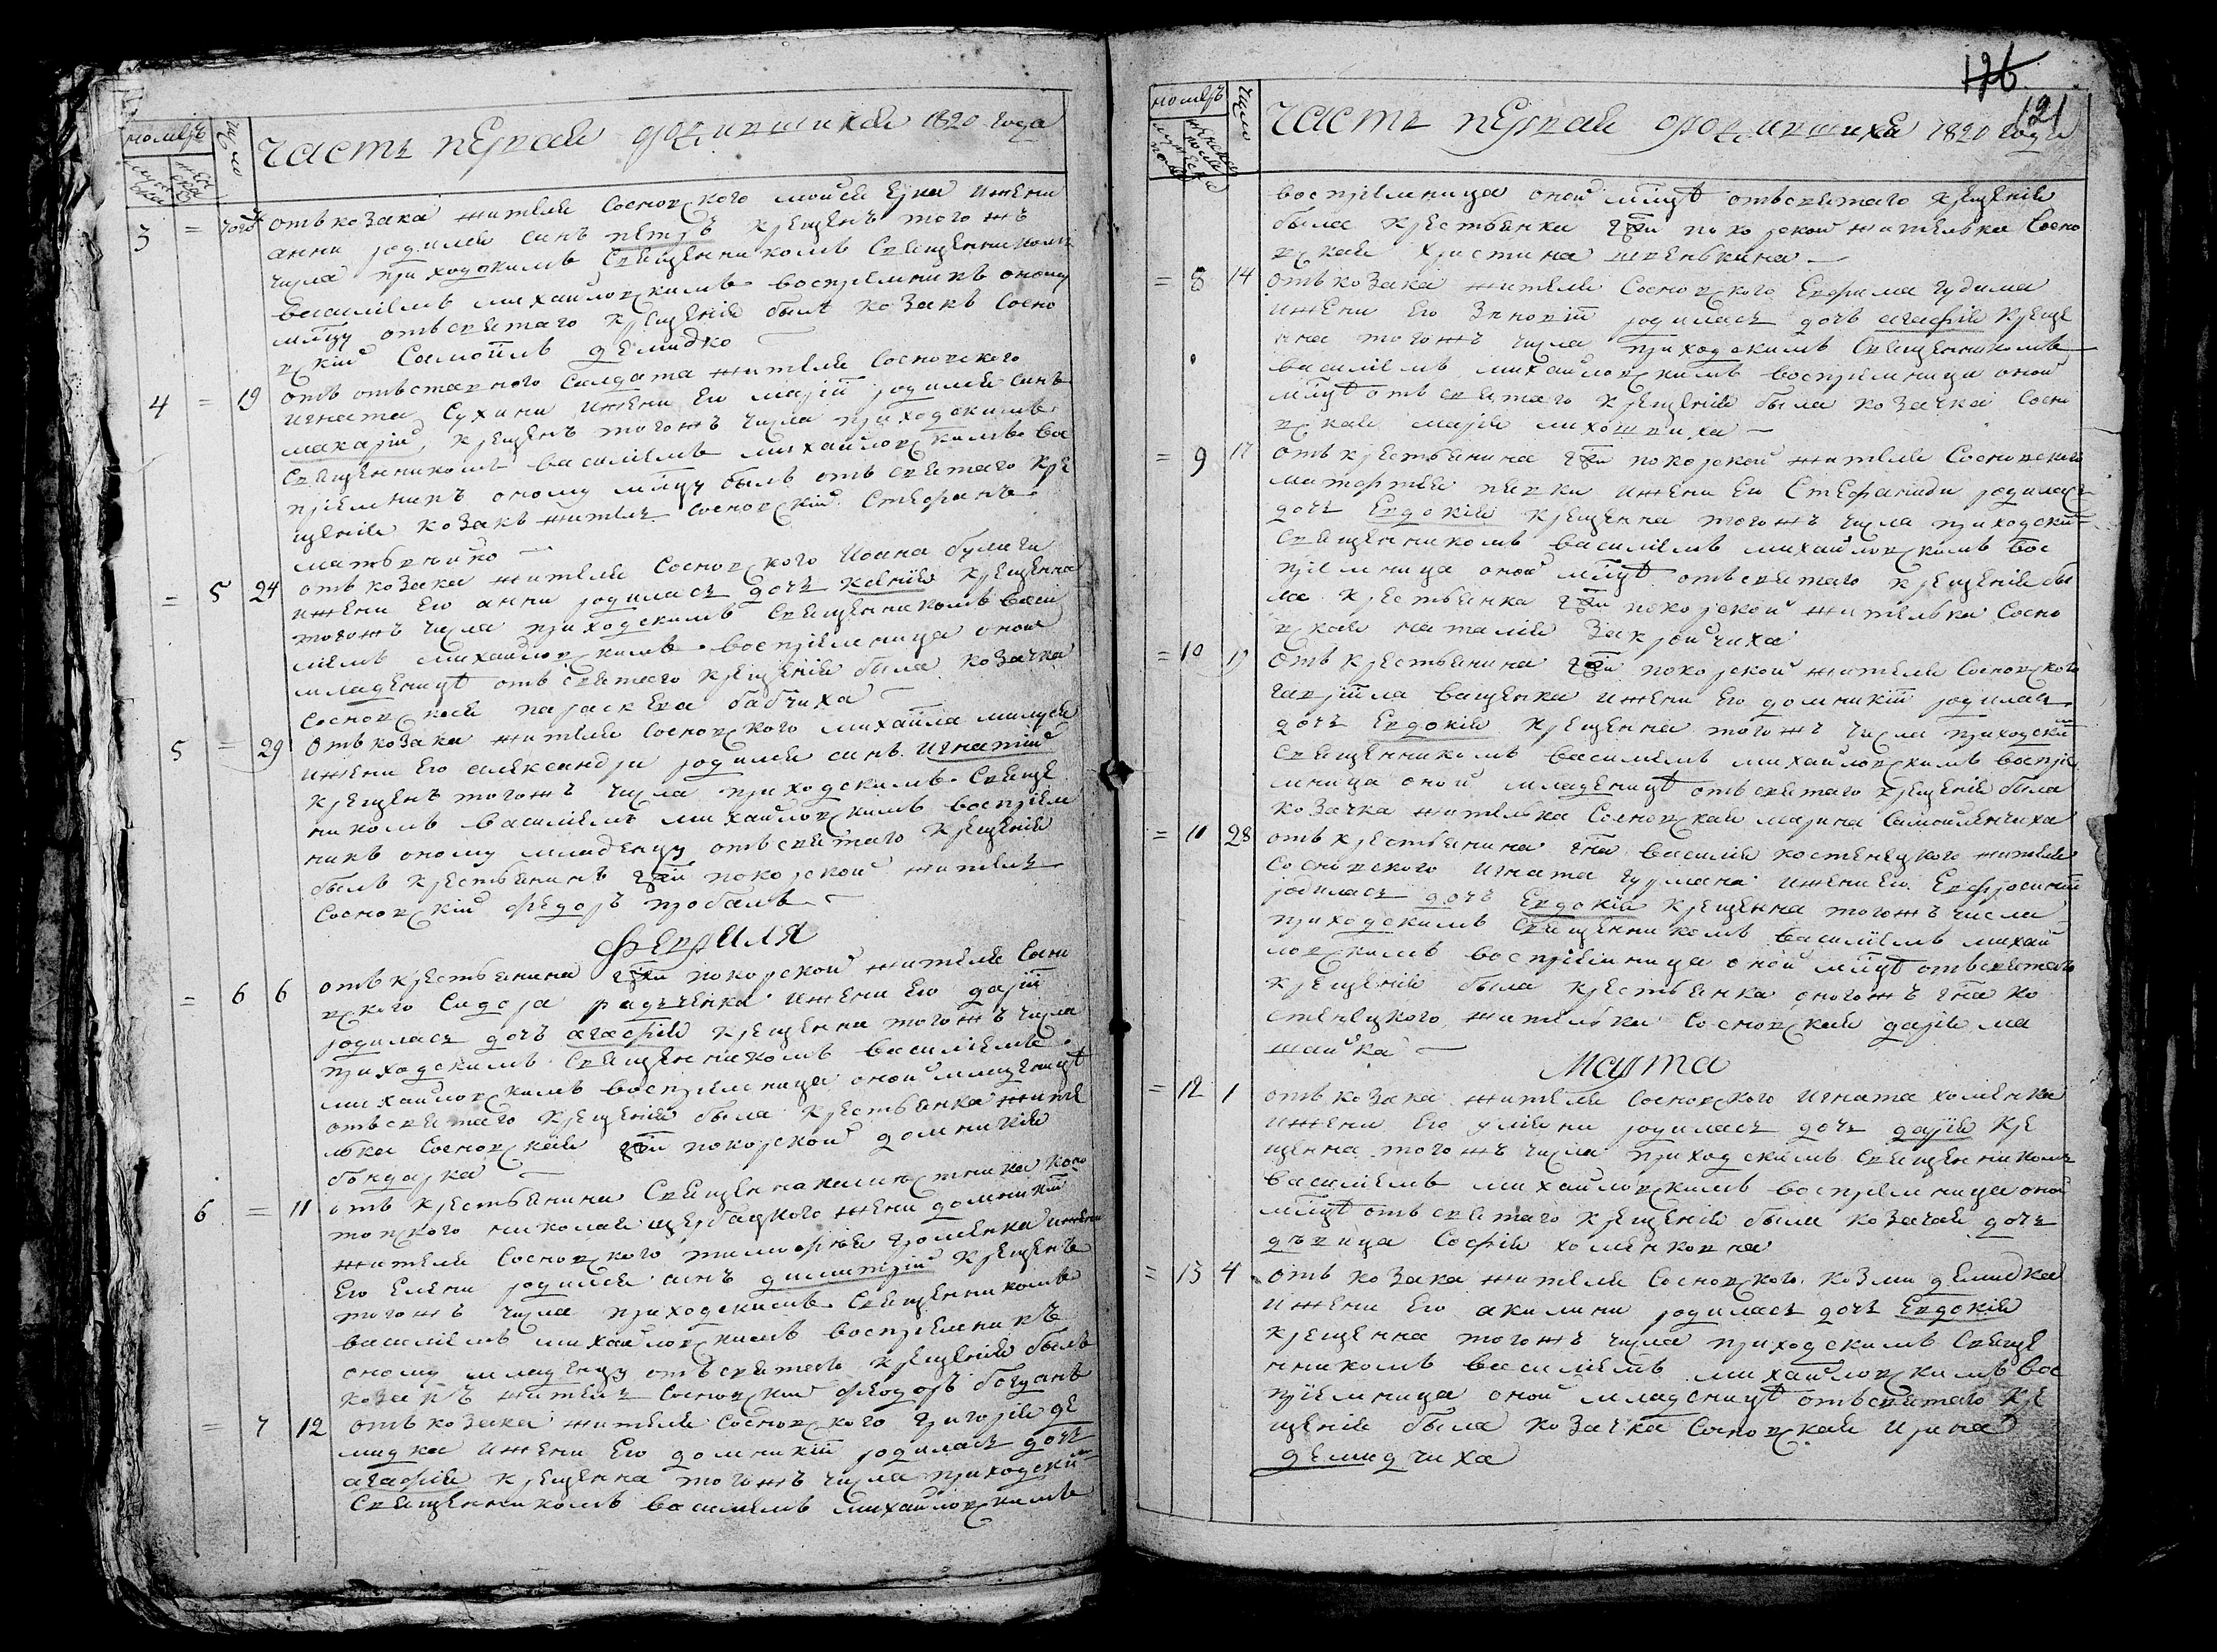 номеръ
число
Часть первая о родившихся 1820 года
3 = отъ козака жителя Сосновского Мойсея Ерка и жени
анни родился синъ петръ крещенъ того жъ
числа приходскимъ Священникомъ Священникомъ
василіемъ михайловскимъ воспріемникъ оному
мл҃нцу отъ святаго крещенія былъ козакъ Сосно
вскій Самойлъ демидко
4 = 19 отъ отъставного Салдата жителя Сосновского
игната Сухини и жени его маріи родился синъ
макарій, крещенъ того жъ числа приходскимъ
Священникомъ василіемъ михайловскимъ вос
пріемникъ оному мл҃нцу былъ отъ святаго кре
щенія козакъ житель Сосновскій Стефанъ
матвѣйко
= 5 24 отъ козака жителя Сосновского Иоана
и жени его анни родилась дочь ксенія крещенна
того жъ числа приходскимъ Священникомъ васи
ліемъ михайловскимъ воспріемница оной
младеницѣ отъ святаго крещенія была козачка
Сосновская параскева бабчиха
5 = 29 отъ козака жителя Сосновского михайла
и жени его александри родился синъ игнатій
крещенъ того жъ числа приходскимъ Свяще
никомъ василіемъ михайловскимъ воспріем
никъ оному младенцу отъ святаго крещенія
былъ крестьянинъ покорской житель
Сосновскій федоръ
февраля
= 6 6 отъ крестьянина покорской жителя Сосно
вского Сидора радченка и жени его даріи
родилась дочь агафія крещенна того жъ числа
приходскимъ Священникомъ василіемъ
михайловскимъ воспріемница оной младеницѣ
отъ святаго крещенія была крестьянка жите
лька Сосновская покорской домникія
бондарка
6 = 11 отъ крестьянина Священнака
николая щербацкого жени домникіи
жителя Сосновского тимофѣя и жени
его Елени родился синъ димитрій крещенъ
того жъ числа приходскимъ Священникомъ
василіемъ михайловскимъ воспріемникъ
оному младенцу отъ святаго крещенія былъ
козакъ житель Сосновскій федоръ богданъ
= 7 12 отъ козака жителя Сосновского григорія де
мидка и жени его домникіи родилась дочь
агафія крещенна того жъ числа приходски
Священникомъ василіемъ михайловскимъ
126
121
номеръ
число
Часть первая о родившихся 1820 года
воспріемница оной мл҃нцѣ отъ святаго крещенія
была крестьянка покорской жителька Сосно
вская христина
= 8 14 отъ козака жителя Сосновского Ефима чудима
и жени его Зиновіи родилась дочь агафія креще
нна того жъ числа приходскимъ Священникомъ
василіемъ михайловскимъ воспріемница оной
мл҃нцѣ отъ святаго крещенія была козачка Сосно
вская марія
= 9 17 отъ крестьянина покорской жителя Сосновского
матфея и жени его Стефаниди родилась
дочь Евдокія крещенна того жъ числа приходски
Священникомъ василіемъ михайловскимъ вос
пріемница оной мл҃нцѣ отъ святаго крещенія бы
ла крестьянка покорской жителька Сосно
вская наталія Закройчиха
= 10 19 отъ крестьянина покорской жителя Сосновского
гавріила ващенка и жени его домникіи родилась
дочь Евдокія крещенна того жъ числа приходски
Священникомъ василіемъ михайловскимъ воспріе
мница оной младеницѣ отъ святаго крещенія была
козачка жителька Сосновская марина Самойленчиха
= 11 28 отъ крестьянина г҃на василія костенецкого жителя
Сосновского игната гурмана и жени его Ефросиніи
родилась дочь Евдокія крещенна того жъ числа
приходскимъ Священникомъ василіемъ михай
ловскимъ воспріемница оной мл҃нцѣ отъ святаго
крещенія была крестьянка оного жъ г҃на ко
стенецкого, жителька Сосновская дарія ма
шайка
Марта
= 12 1 отъ козака жителя Сосновского игната хоменка
и жени его уліяни родилась дочь дарія кре
щенна того жъ числа приходскимъ Священникомъ
василіемъ михайловскимъ воспріемница оной
мл҃нцѣ отъ святаго крещенія была козачая дочь
дѣвица Софія хоменковна
= 13 4 отъ козака жителя Сосновского козми демидка
и жени его акилини родилась дочь Евдокія
крещенна того жъ числа приходскимъ Свяще
нникомъ василіемъ михайловскимъ вос
пріемница оной младеницѣ отъ святаго кре
щенія была козачка Сосновская ирина
демидчиха